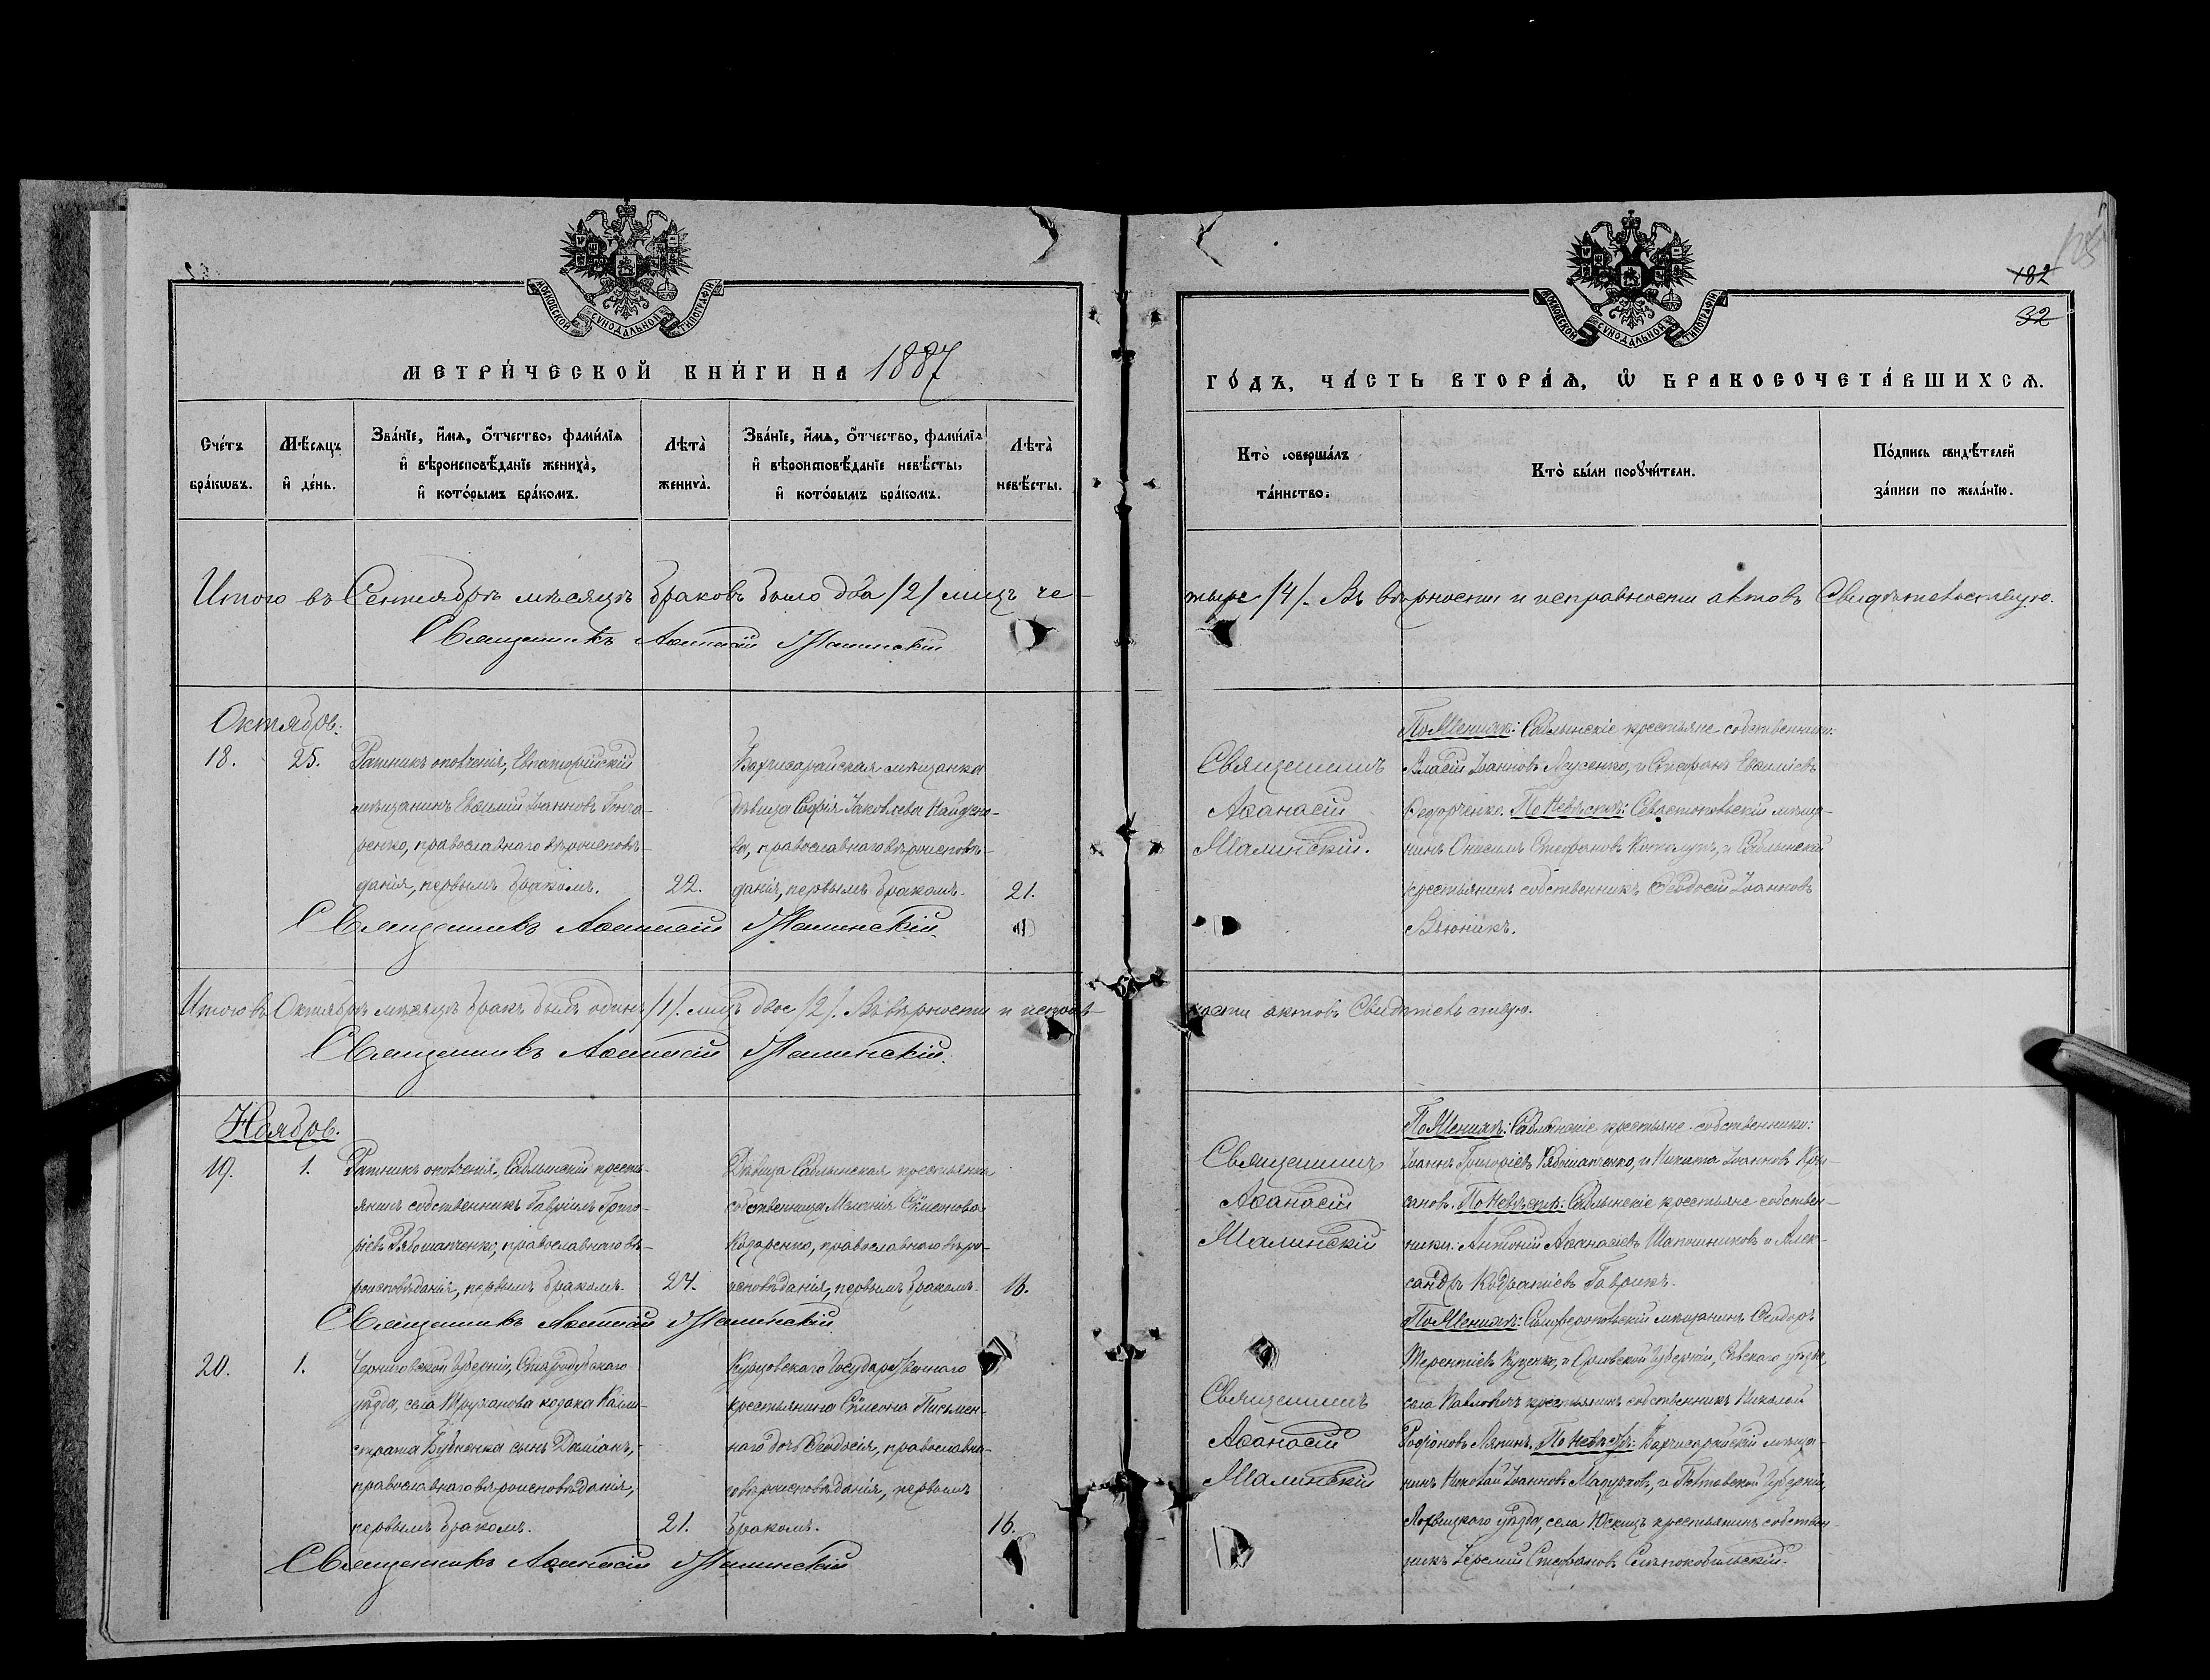 МОСКОВСКОЙ СѴНОДАЛЬНОЙ ТИПОГРАФІИ
МЕТРИ́ЧЕСКОЙ КНИ́ГИ НА 1887
Сче́тъ бра́кѡвъ.
Мѣ́сяцъ и҆ де́нь.
Зва́нїе, и҆́мѧ, ѻ҆́тчество, фами́лїѧ и҆ вѣроисповѣ́данїе жениха̀, и҆ кото́рымъ бра́комъ.
Лѣта̀ жениха̀.
Зва́нїе, и҆́мѧ, ѻ҆́тчество, фами́лїѧ и҆ вѣроисповѣ́данїе невѣ́сты, и҆ кото́рымъ бра́комъ.
Лѣта̀ невѣ́сты.
Итого въ Сентябрѣ мѣсяцѣ браковъ было два /2/ лицъ че-
Священникъ Аѳанасій Малинскій
Октябрь.
18.
25.
Ратникъ ополченія, Евпаторійскій
мѣщанинъ Евѳимій Іоанновъ Гонча-
ренко, православнаго вѣроисповѣ-
данія, первымъ бракомъ.
22.
Бахчисарайская мѣщанка
дѣвица Софія Іаковлева Найдено-
ва, православнаго вѣроисповѣ-
данія, первымъ бракомъ.
21.
Священникъ Аѳанасій Малинскій
Итого въ Октябрѣ мѣсяцѣ бракъ былъ одинъ /1/. лицъ двое /2/. Въ вѣрности и исправ-
Священникъ Аѳанасій Малинскій.
Ноябрь.
19.
1.
Ратникъ ополченія, Саблынскій кресть-
янинъ собственникъ Гавріилъ Григо-
ріевъ Рябошапченко, православнаго вѣ-
роисповѣданія, первымъ бракомъ.
24.
Дѣвица Саблынская крестьянка
собственница Меланія
православнаго вѣро-
исповѣданія, первымъ бракомъ.
16.
Священникъ Аѳанасій Малинскій
20.
1.
Черниговской Губерніи, Стародубскаго
уѣзда, села козака Кали-
страта сынъ Даміанъ,
православнаго вѣроисповѣданія,
первымъ бракомъ.
21.
Государственнаго
крестьянина Сѵмеона Письмен-
наго дочь Ѳеодосія, православна-
го вѣроисповѣданія, первымъ
бракомъ.
16.
Священникъ Аѳанасій Малинскій
МОСКОВСКОЙ СѴНОДАЛЬНОЙ ТИПОГРАФІИ
182
32
ГО́ДЪ, ЧА́СТЬ ВТОРА́Ѧ, Ѡ҆ БРАКОСОЧЕТА́ВШИХСѦ.
Кто̀ соверша́лъ та́инство.
Кто̀ бы́ли порꙋчи́тели.
По́дпись свидѣ́телей за́писи по жела́нїю.
тыре /4/. Въ вѣрности и исправности актовъ Свидѣтельствую.
Священникъ
Аѳанасій
Малинскій.
По Женихѣ: Саблынскіе крестьяне собственники:
Власій Іоанновъ и Стефанъ Евѳиміевъ
Федорченко. По Невѣстѣ: Севастопольскій мѣща-
нинъ Онисимъ Стефановъ и Саблынскій
крестьянинъ собственникъ Ѳеодосій Іоанновъ
Вьюникъ.
ности актовъ Свидѣтельствую.
Священникъ
Аѳанасій
Малинскій
По Женихѣ: Саблынскіе крестьяне собственники:
Іоаннъ Григоріевъ Рябошапченко, и Никита Іоанновъ
По Невѣстѣ: Саблынскіе крестьяне собствен-
ники: Антоній Аѳанасіевъ Шапошниковъ и Алек-
сандръ Кодратіевъ Гаврикъ.
Священникъ
Аѳанасій
Малинскій
По Женихѣ: Симферопольскій мѣщанинъ Ѳеодоръ
Терентіевъ Куценко, и Орловской Губерніи, Сѣвскаго уѣзда,
села крестьянинъ собственникъ Николай
Родіоновъ Ляпинъ. По Невѣстѣ: Бахчисарайскій мѣща-
нинъ Николай Іоанновъ и Полтавской Губерніи,
уѣзда, села крестьянинъ собствен-
никъ Іеремій Стефановъ